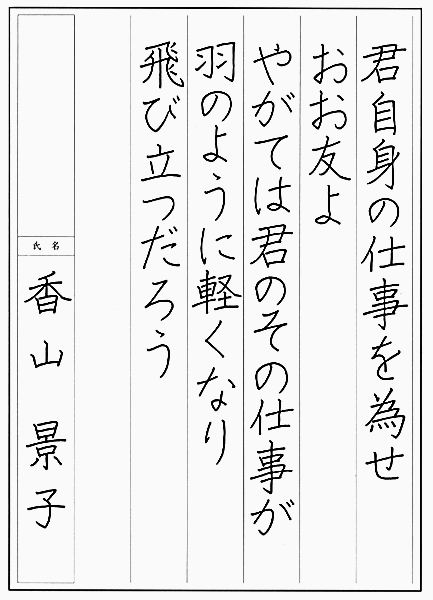 君自身の仕事を為せ
おお友よ
やがては君のその仕事が
羽のように軽くなり
飛び立つだろう
氏名
香山 景子